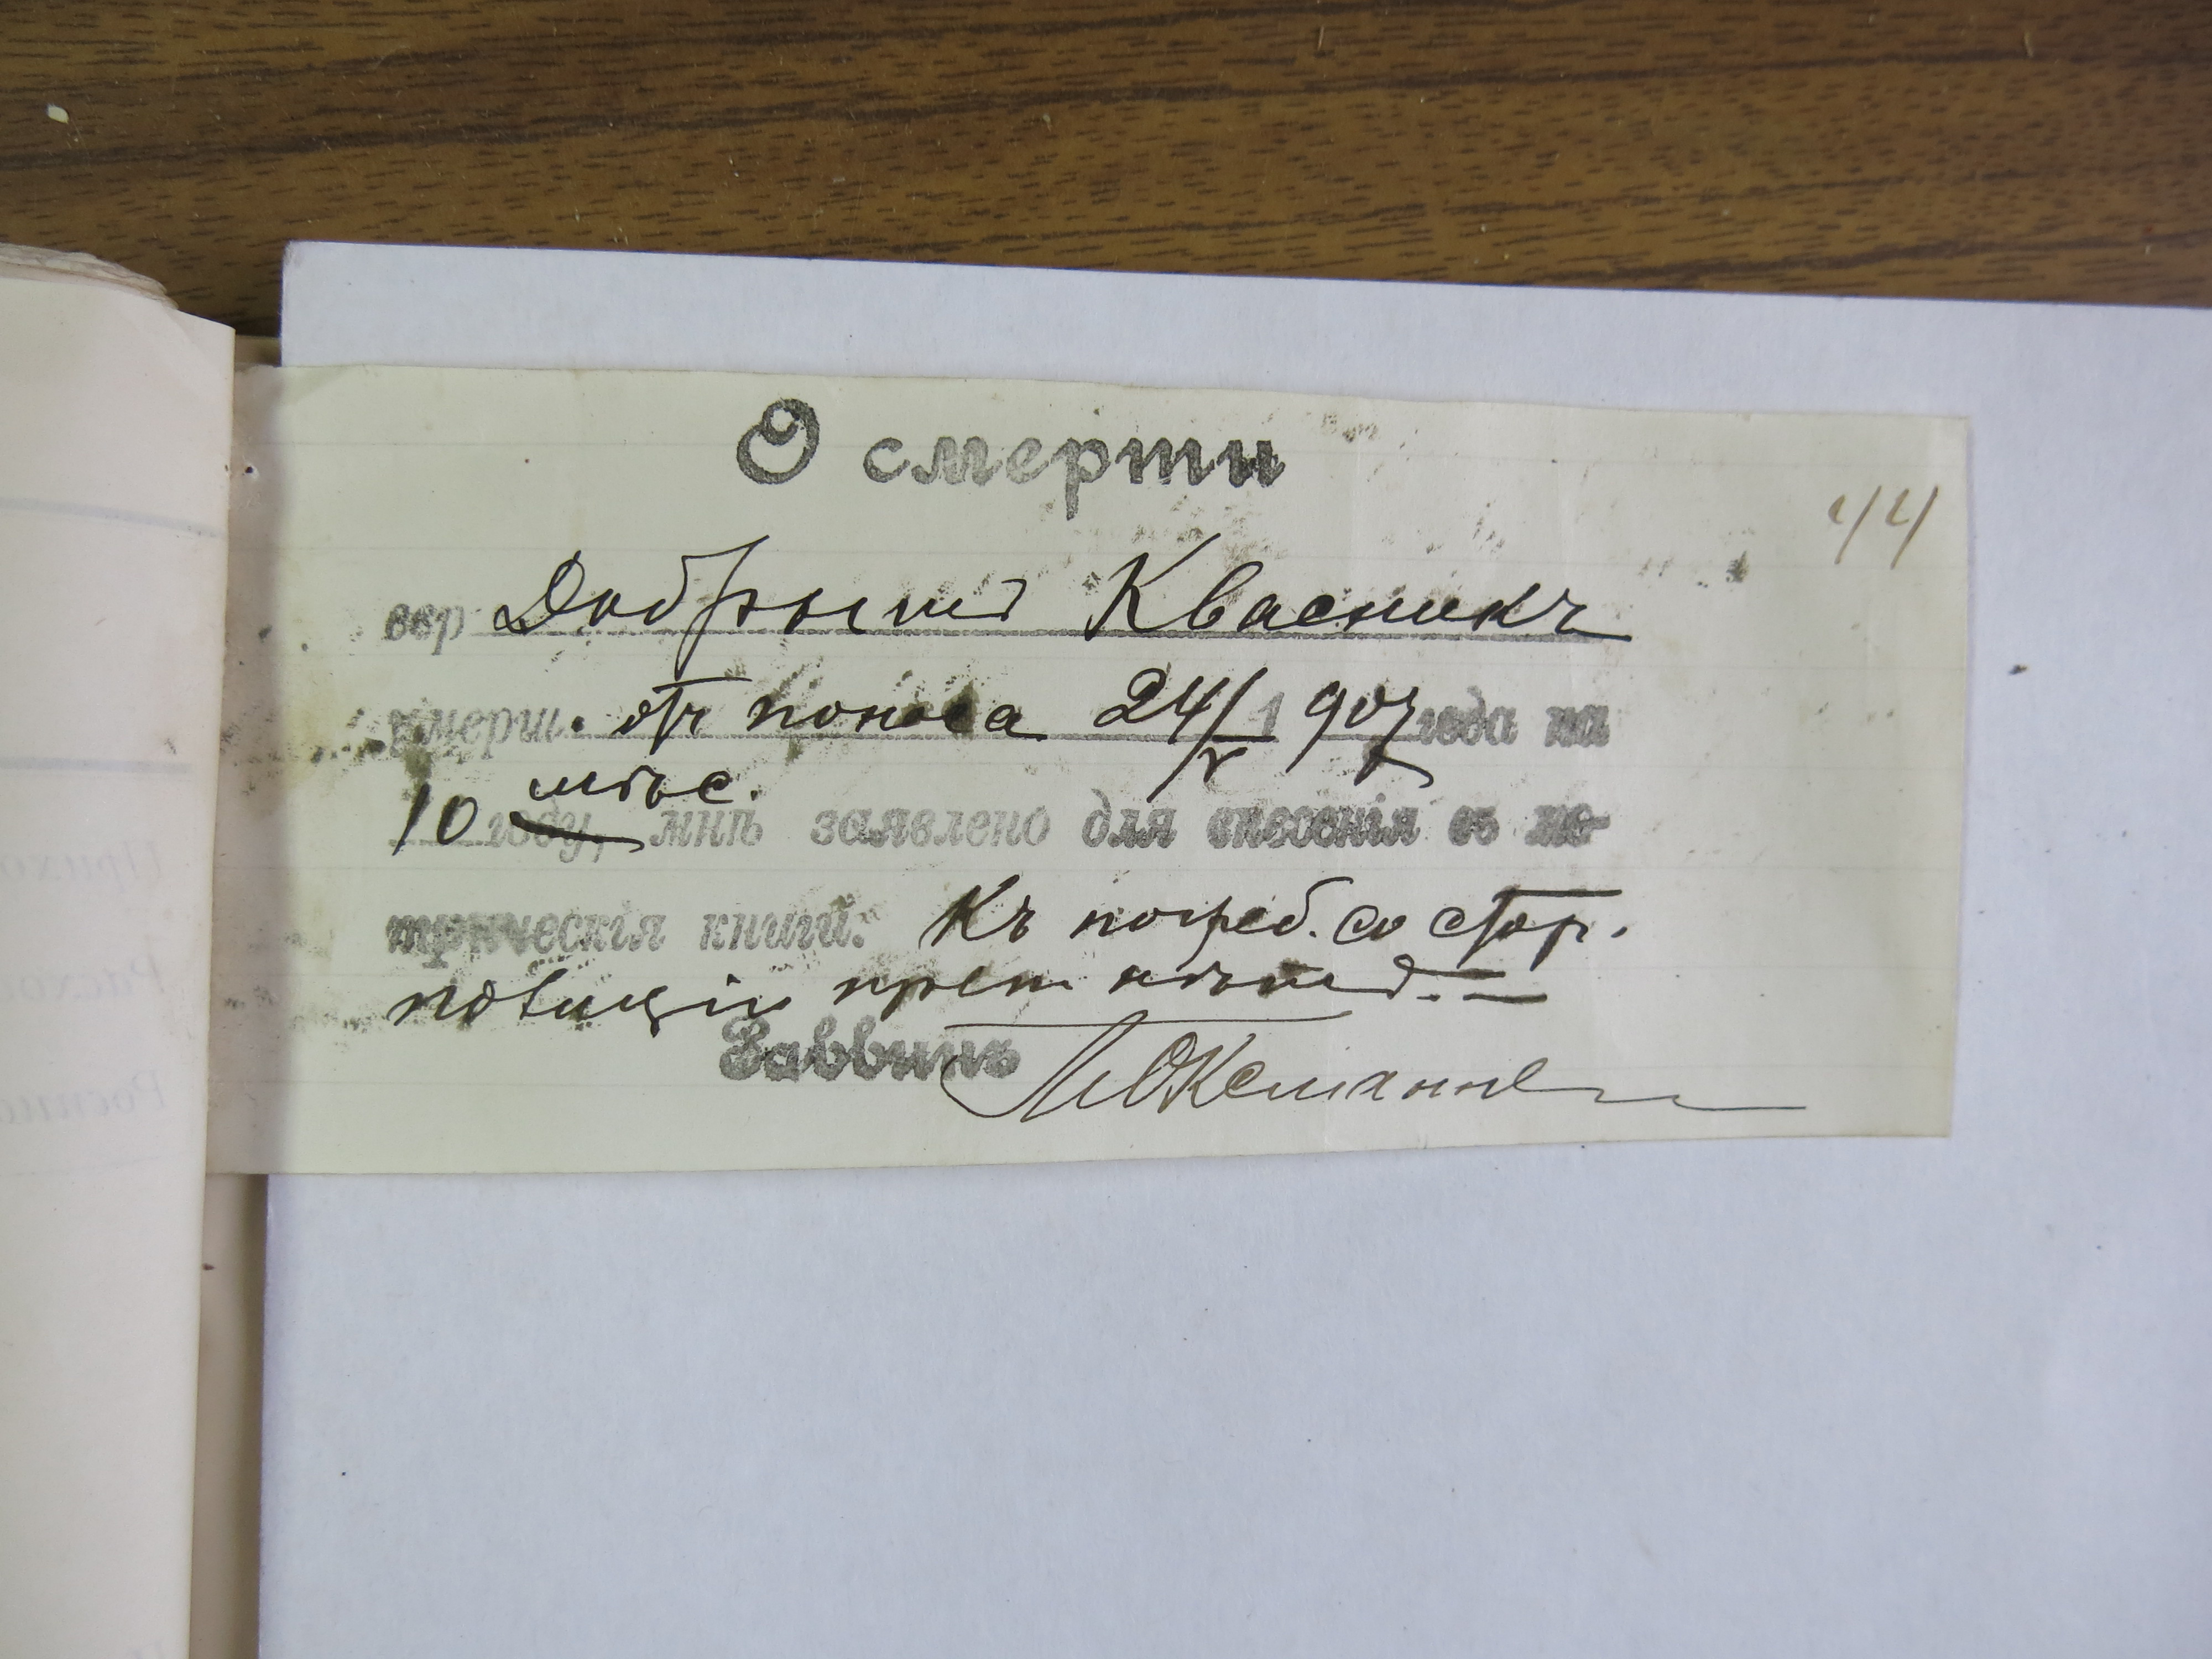 О смерти
44
вер Добрышъ Квасникъ
умерш. отъ поноса 24/V 1907 года на
10 мѣс. году, мнѣ заявлено для внесенія въ ме-
трическія книги. Къ погреб. со стор.
полиціи преп. нѣтъ.
Раввинъ